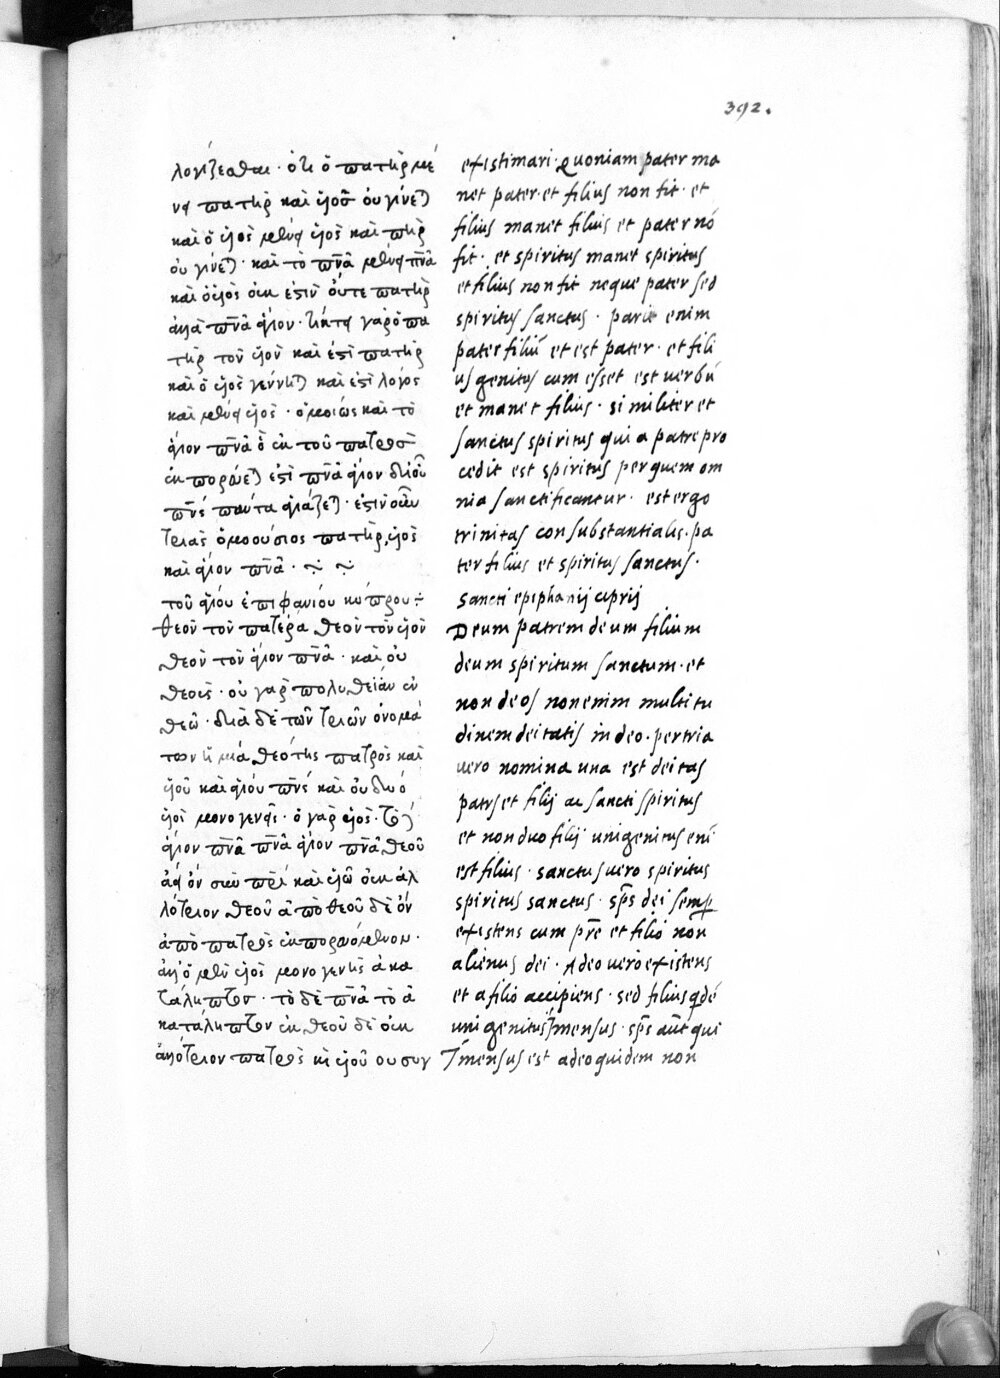 392.
λογίζεσθαι· ὅτι ὁ πατὴρ μέ
νει πατὴρ καὶ υἱὸς οὐ γίνεται
καὶ ὁ υἱὸς μένει υἱὸς καὶ πατὴρ
οὐ γίνεται· καὶ τὸ πνᾶ μένει πνᾶ
καὶ ὁ υἱὸς οὐκ ἐστιν οὔτε πατὴρ
ἀλλὰ πνᾶ ἅγιον· τίκτει γὰρ ὁ πα
τὴρ τὸν υἱὸν καὶ ἐστὶ πατὴρ
καὶ ὁ υἱὸς γεννηται καὶ ἐστὶ λόγος
καὶ μένει υἱὸς· ὁμοίως καὶ τὸ
ἅγιον πνᾶ ὃ ἐκ τοῦ πατρὸς
ἐκπορεύεται ἐστὶ πνᾶ ἅγιον δι οὗ
πνς πάντα ἁγιάζεται· ἐστιν οὖν
τριὰς ὁμοούσιος πατὴρ, υἱὸς
καὶ ἅγιον πνᾶ·
τοῦ ἁγίου ἐπιφανίου κύπρου
θεὸν τὸν πατέρα θεὸν τὸν υἱὸν
θεὸν τὸν ἅγιον πνᾶ· καὶ οὐ
θεοὺς· οὐ γὰρ πολυθεΐαν ἐν
θεῷ· διὰ δὲ τῶν τριῶν ὀνομά
των ἡ μία θεότης πατρὸς καὶ
υἱοῦ καὶ ἁγίου πνς καὶ οὐ δύο
υἱοὶ μονογενεῖς· ὁ γὰρ υἱὸς· τὸ
ἅγιον πνᾶ πνᾶ ἅγιον πνᾶ θεοῦ
ἀεὶ ὂν σὺν πρὶ καὶ υἱῷ οὐκ ἀλ
λότριον θεοῦ ἀπὸ θεοῦ δὲ ὂν
ἀπὸ πατρὸς ἐκπορευόμενον·
ἀλλ ὁ μὲν υἱὸς μονογενὴς ἀκα
τάληπτον· τὸ δὲ πνᾶ τὸ ἀ
κατάληπτον ἐκ θεοῦ δὲ οὐκ
ἀλλότριον πατρὸς κὶ υἱοῦ ου συγ
existimari· quoniam pater ma
net pater· et filius non fit· et
filius manet filius et pater nō
fit· et spiritus manet spiritus
et filius non fit neque pater sed
spiritus sanctus· parit enim
pater filiū et est pater· et fili
us genitus cum esset est verbū
et manet filius· similiter et
sanctus spiritus qui a patre pro
cedit est spiritus per quem om
nia sanctificantur· est ergo
trinitas consubstantialis· pa
ter filius et spiritus sanctus·
sancti epiphanij ciprij
Deum patrem deum filium
deum spiritum sanctum· et
non deos non enim multitu
dinem deitatis in deo· per tria
vero nomina una est deitas
patris et filij ac sancti spiritus
et non duo filij unigenitus eni
est filius· sanctus vero spiritus
spiritus sanctus· sps dei semp
existens cum pre et filio non
alienus dei· Adeo vero existens
et a filio accipiens· sed filius qdē
unigenitus Immensus· sps aūt qui
Immensus est adeo quidem non